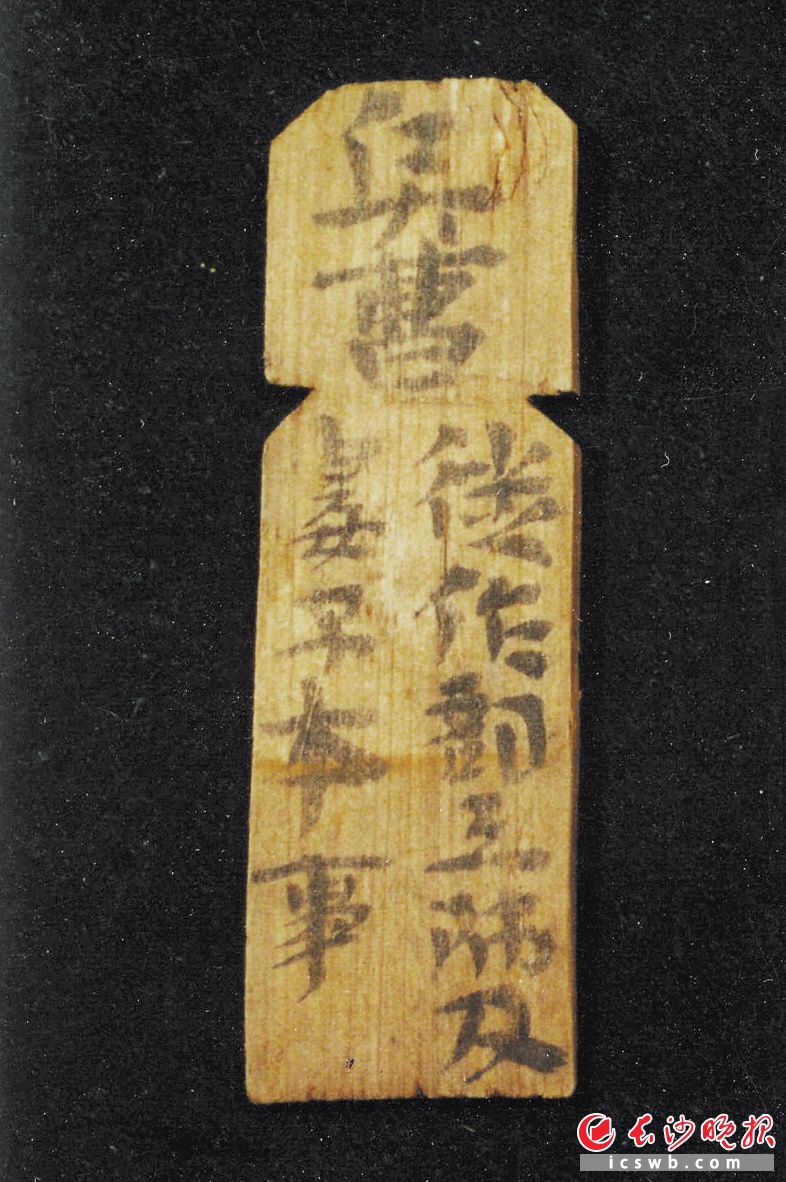 兵曹
徙作部工師及
妻子本事
长沙晚报
icswb.com